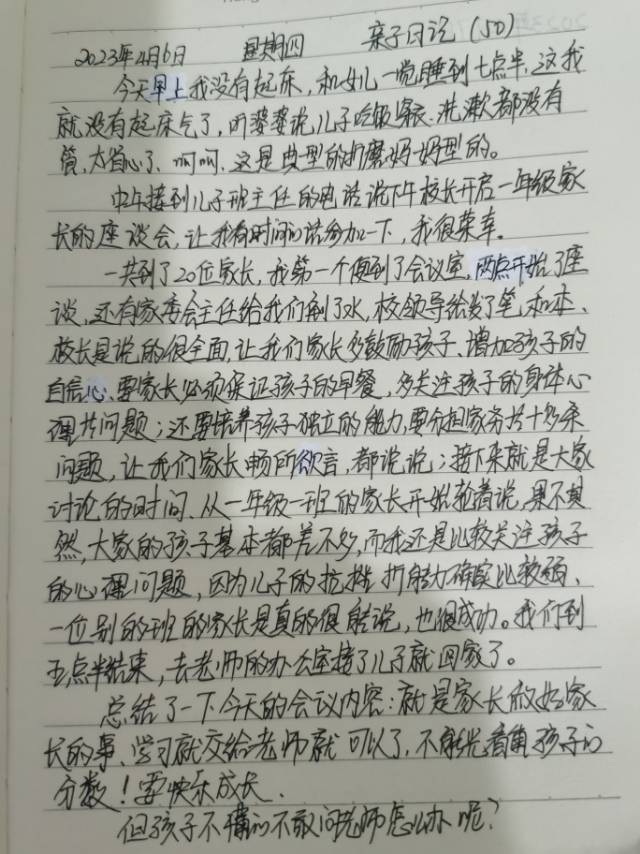 2023年4月6日 星期四 亲子日记(50)
今天早上我没有起床,和女儿一觉睡到七点半,这我
就没有起床气了,听婆婆说儿子吃饭穿衣、洗漱都没有
管,太省心了、呵呵、这是典型的折磨妈妈型的。
中午接到儿子班主任的电话说下午校长开启一年级家
长的座谈会,让我有时间的话参加一下,我很荣幸。
一共到了20位家长,我第一个便到了会议室,两点开始了座
谈,还有家委会主任给我们倒了水,校领导给发了笔和本、
校长是说的很全面,让我们家长多鼓励孩子、增加孩子的
自信心、要家长必须保证孩子的早餐,多关注孩子的身体心
理等问题;还要培养孩子独立的能力,要分担家务等十多条
问题,让我们家长畅所欲言,都说说;接下来就是大家
讨论的时间、从一年级一班的家长开始轮着说,果不其
然,大家的孩子基本都差不多,而我还是比较关注孩子
的心理问题,因为儿子的抗挫折能力确实比较弱、
一位别的班的家长是真的很能说,也很成功。我们到
五点半结束,去老师的办公室接了儿子就回家了。
总结了一下今天的会议内容:就是家长做好家
长的事、学习就交给老师就可以了,不能光看重孩子的
分数!要快乐成长.
但孩子不懂的不敢问老师怎么办呢?